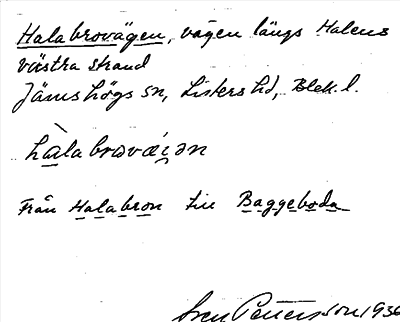 Halabrovägen, vägen längs Halens
västra strand
Jämshögs sn, Listers hd, Blek. l.
hàlabrovä́i̯ən
Från Halabron till Baggeboda
Sven Pettersson 1936